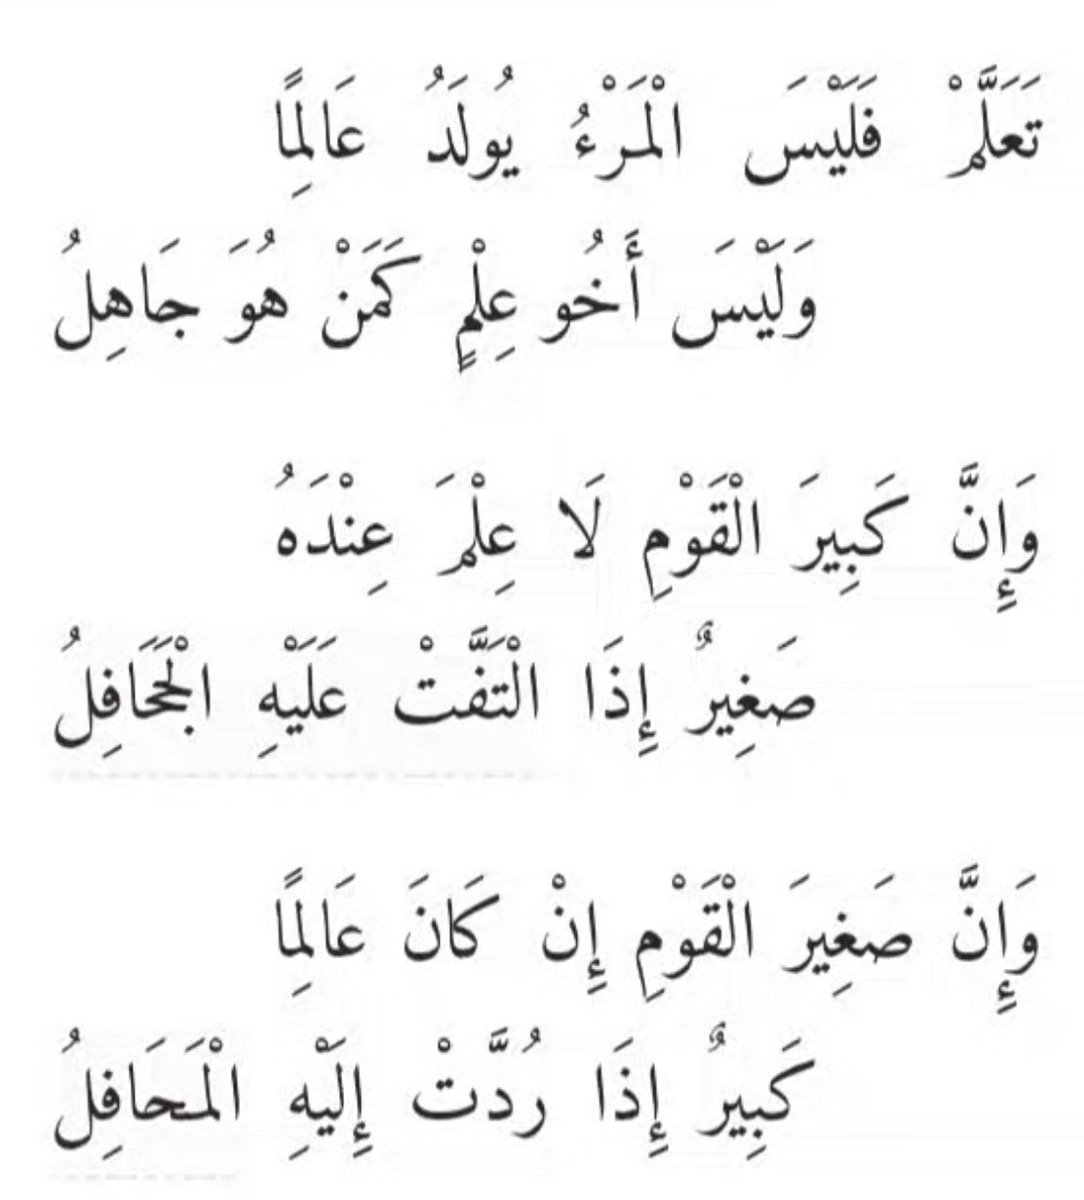 تَعَلَّمْ فَلَيْسَ الْمَرْءُ يُولَدُ عَالِمًا
وَلَيْسَ أَخُو عِلْمٍ كَمَنْ هُوَ جَاهِلُ
وَإِنَّ كَبِيرَ الْقَوْمِ لَا عِلْمَ عِنْدَهُ
صَغِيرٌ إِذَا الْتَفَّتْ عَلَيْهِ الْجَحَافِلُ
وَإِنَّ صَغِيرَ الْقَوْمِ إِنْ كَانَ عَالِمًا
كَبِيرٌ إِذَا رُدَّتْ إِلَيْهِ الْمَحَافِلُ